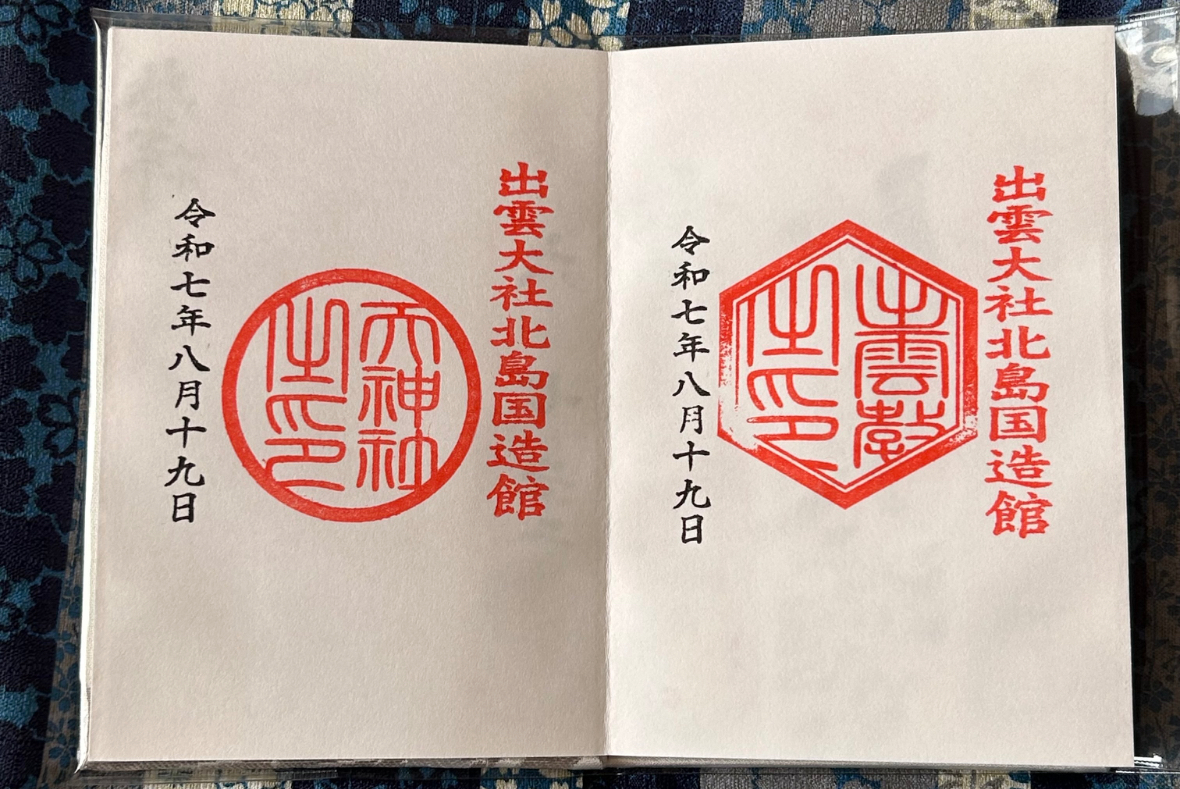 出雲大社北島国造館
出雲教
之印
令和七年八月十九日
出雲大社北島国造館
天神社
之印
令和七年八月十九日